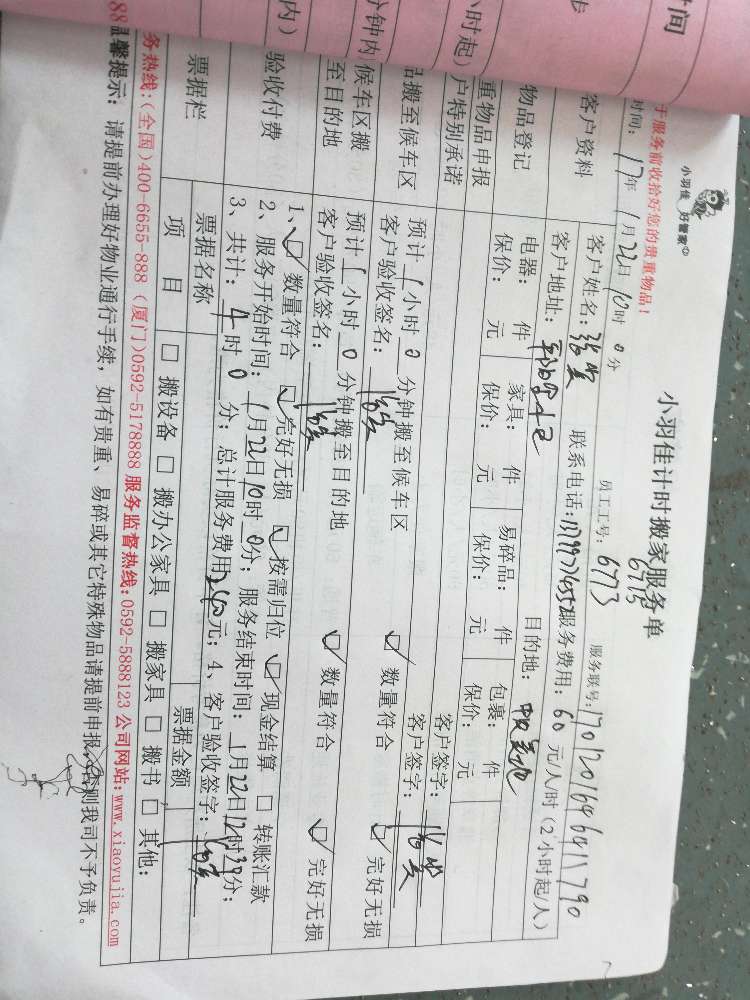 小羽佳 好管家
小羽佳计时搬家服务单
于服务前收拾好您的贵重物品!
员工工号: 6773
6715
服务联号: 170120164641790
时间: 17年 1月22日 10时 0分
客户资料
客户姓名: 联系电话: 服务费用: 60 元/人/时(2小时起/人)
客户地址: 目的地:
物品登记
电器: 件 家具: 件 易碎品: 件 包裹: 件
保价: 元 保价: 元 保价: 元 保价: 元
重物品申报
户特别承诺
客户签字:
品搬至候车区
预计 1 小时 0 分钟搬至候车区
客户签字:
客户验收签名: ☑ 数量符合 ☑ 完好无损
候车区搬
至目的地
预计 1 小时 0 分钟搬至目的地
客户验收签名: ☑ 数量符合 ☑ 完好无损
验收付费
1、☑ 数量符合 ☑ 完好无损 ☑ 按需归位 ☑ 现金结算 □ 转账汇款
2、服务开始时间: 1月22日10时 0分; 服务结束时间: 1月22日12时30分;
3、共计: 4 时 0 分; 总计服务费用 元; 4、客户验收签字:
票据栏
票据名称 票据金额
项 目 □ 搬设备 □ 搬办公家具 □ 搬家具 □ 搬书 □ 其他:
务热线:(全国)400-6655-888 (厦门)0592-5178888 服务监督热线:0592-5888123 公司网站:www.xiaoyujia.com
温馨提示: 请提前办理好物业通行手续, 如有贵重、易碎或其它特殊物品请提前申报,否则我司不予负责。
时间
步
小时起)
分钟内
内)